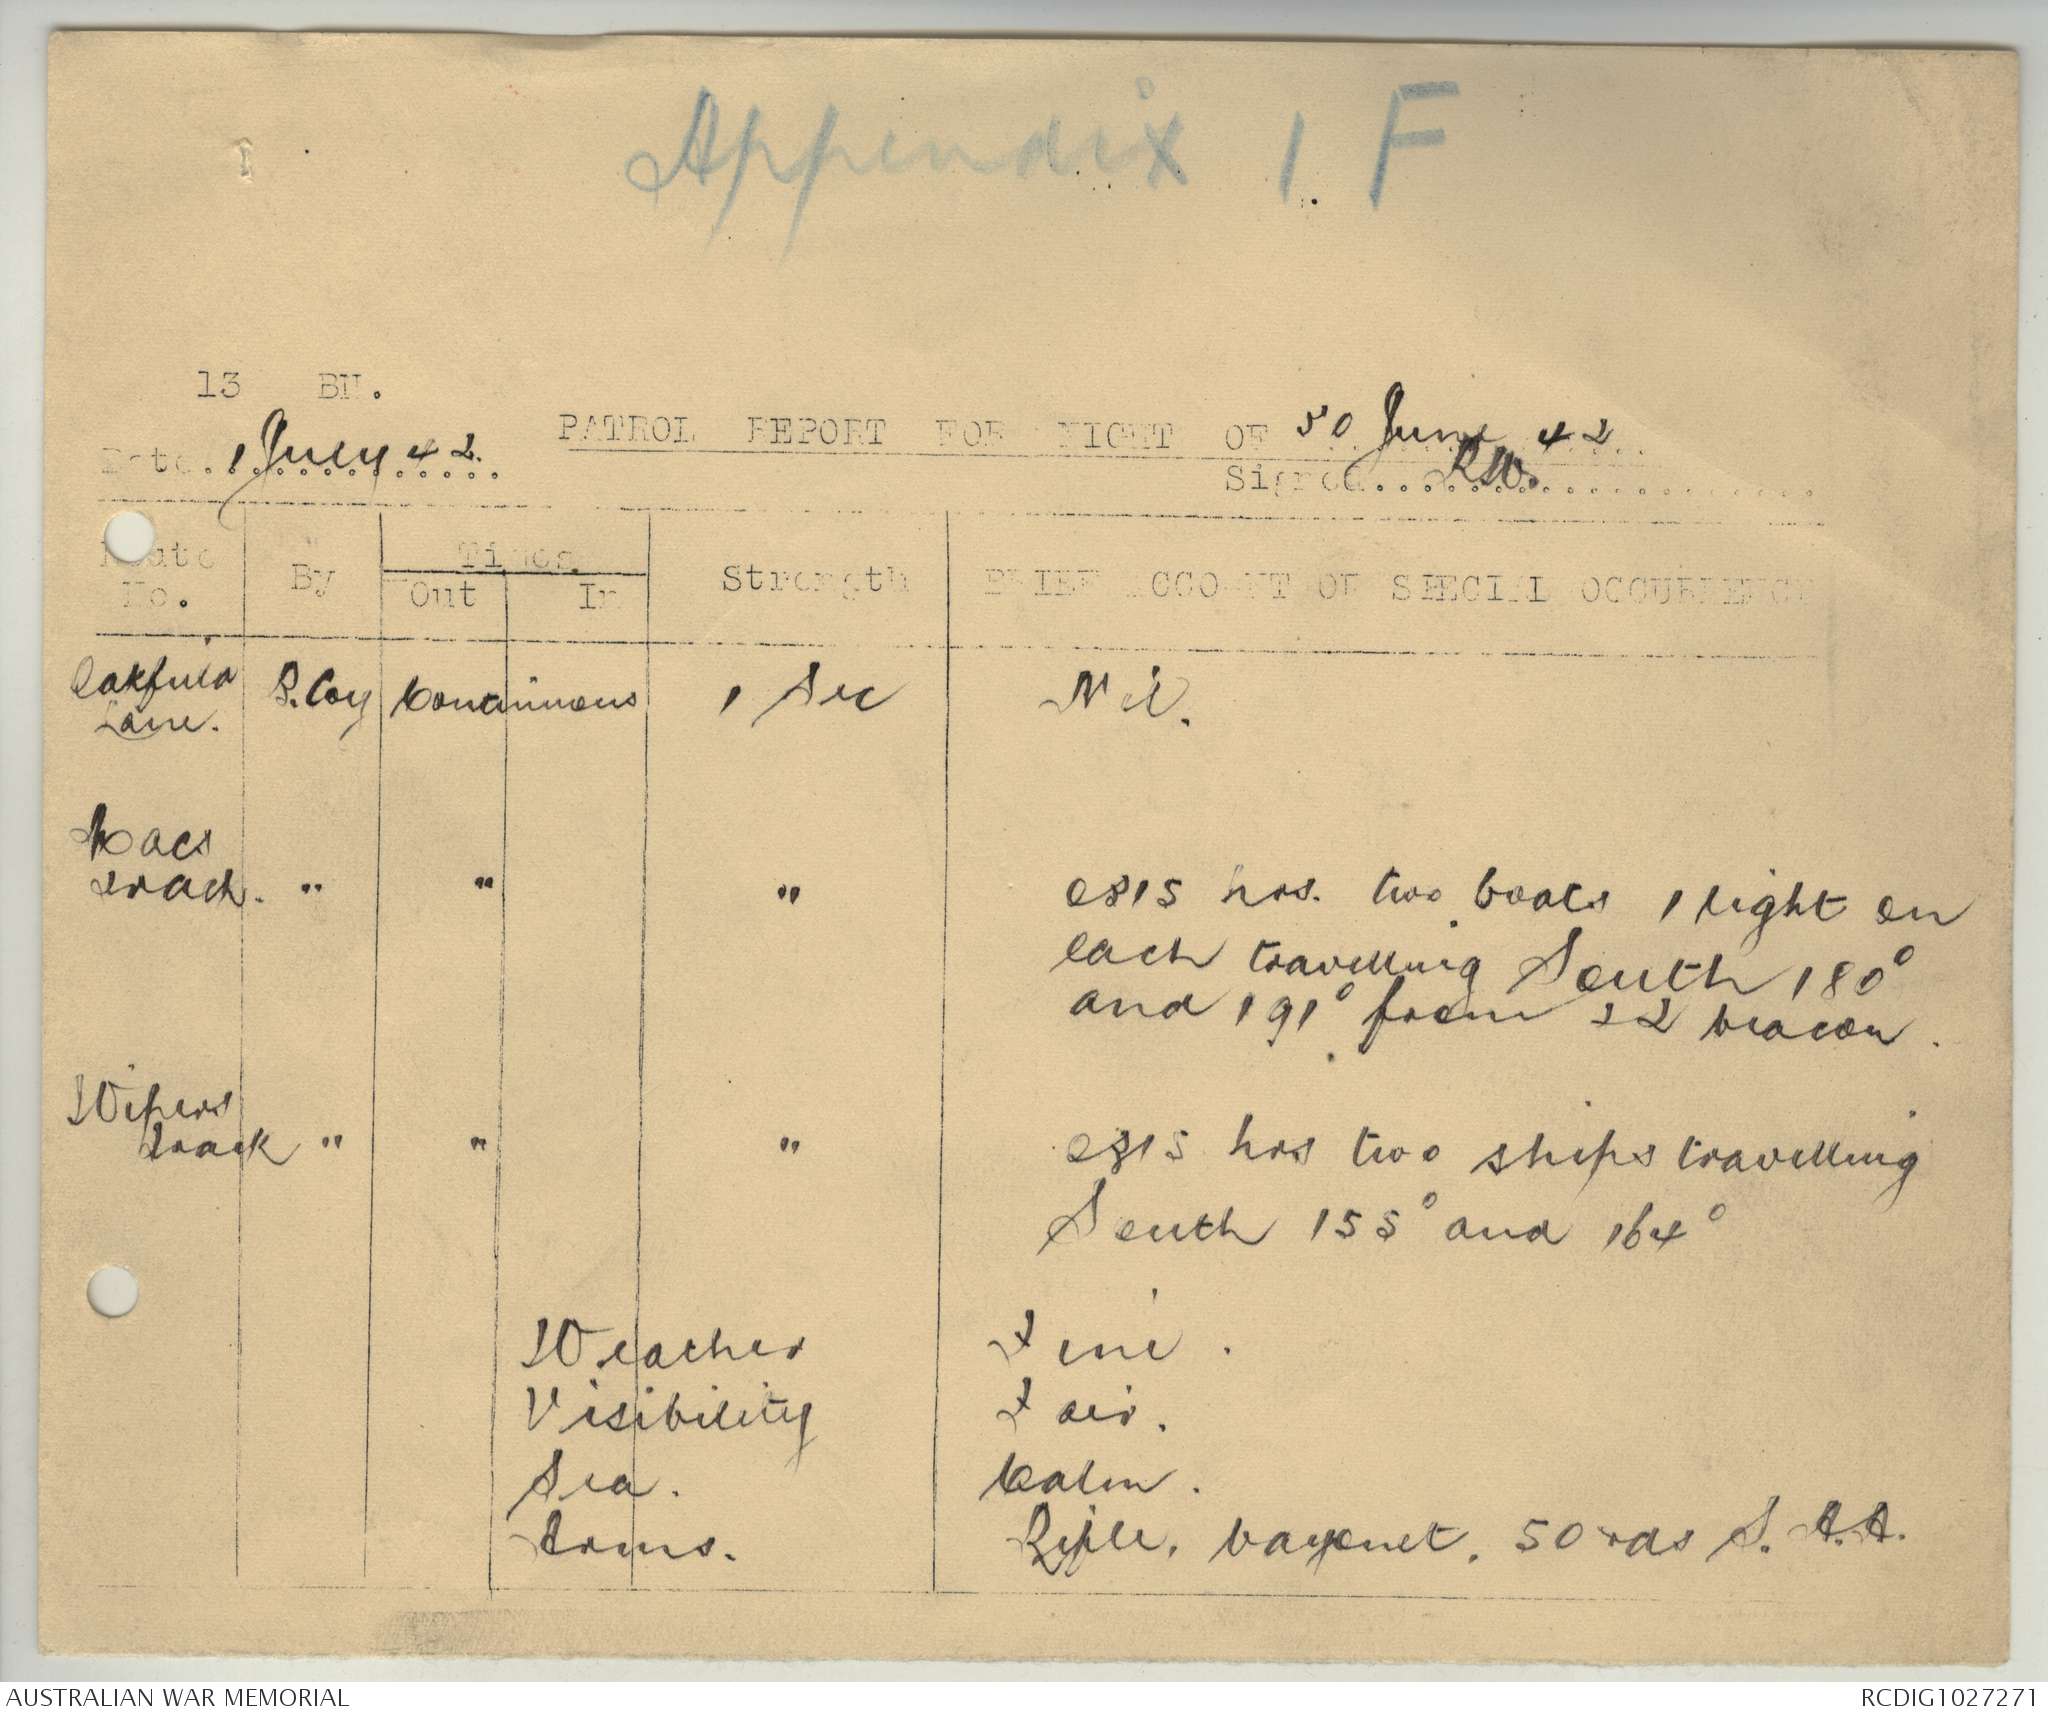 Appendix 1 F
13 BN.
PATROL REPORT FOR NIGHT OF 30 June 42
Date. 1 July 42.
Signed... RW.
Route No. By Times. Out In Strength BRIEF ACCOUNT OF SPECIAL OCCURRENCE
Lane. Coy Continuous 1 Sec Nil.
Macs
track. " " " 0315 hrs. two boats 1 light on
each travelling South 180°
and 191° from 22 beacon.
Wipers
track " " " 0315 hrs two ships travelling
South 155° and 164°
Weather Fine.
Visibility Fair.
Sea. Calm.
Arms. Rifle, bayonet, 50 rds S.A.A.
AUSTRALIAN WAR MEMORIAL
RCDIG1027271